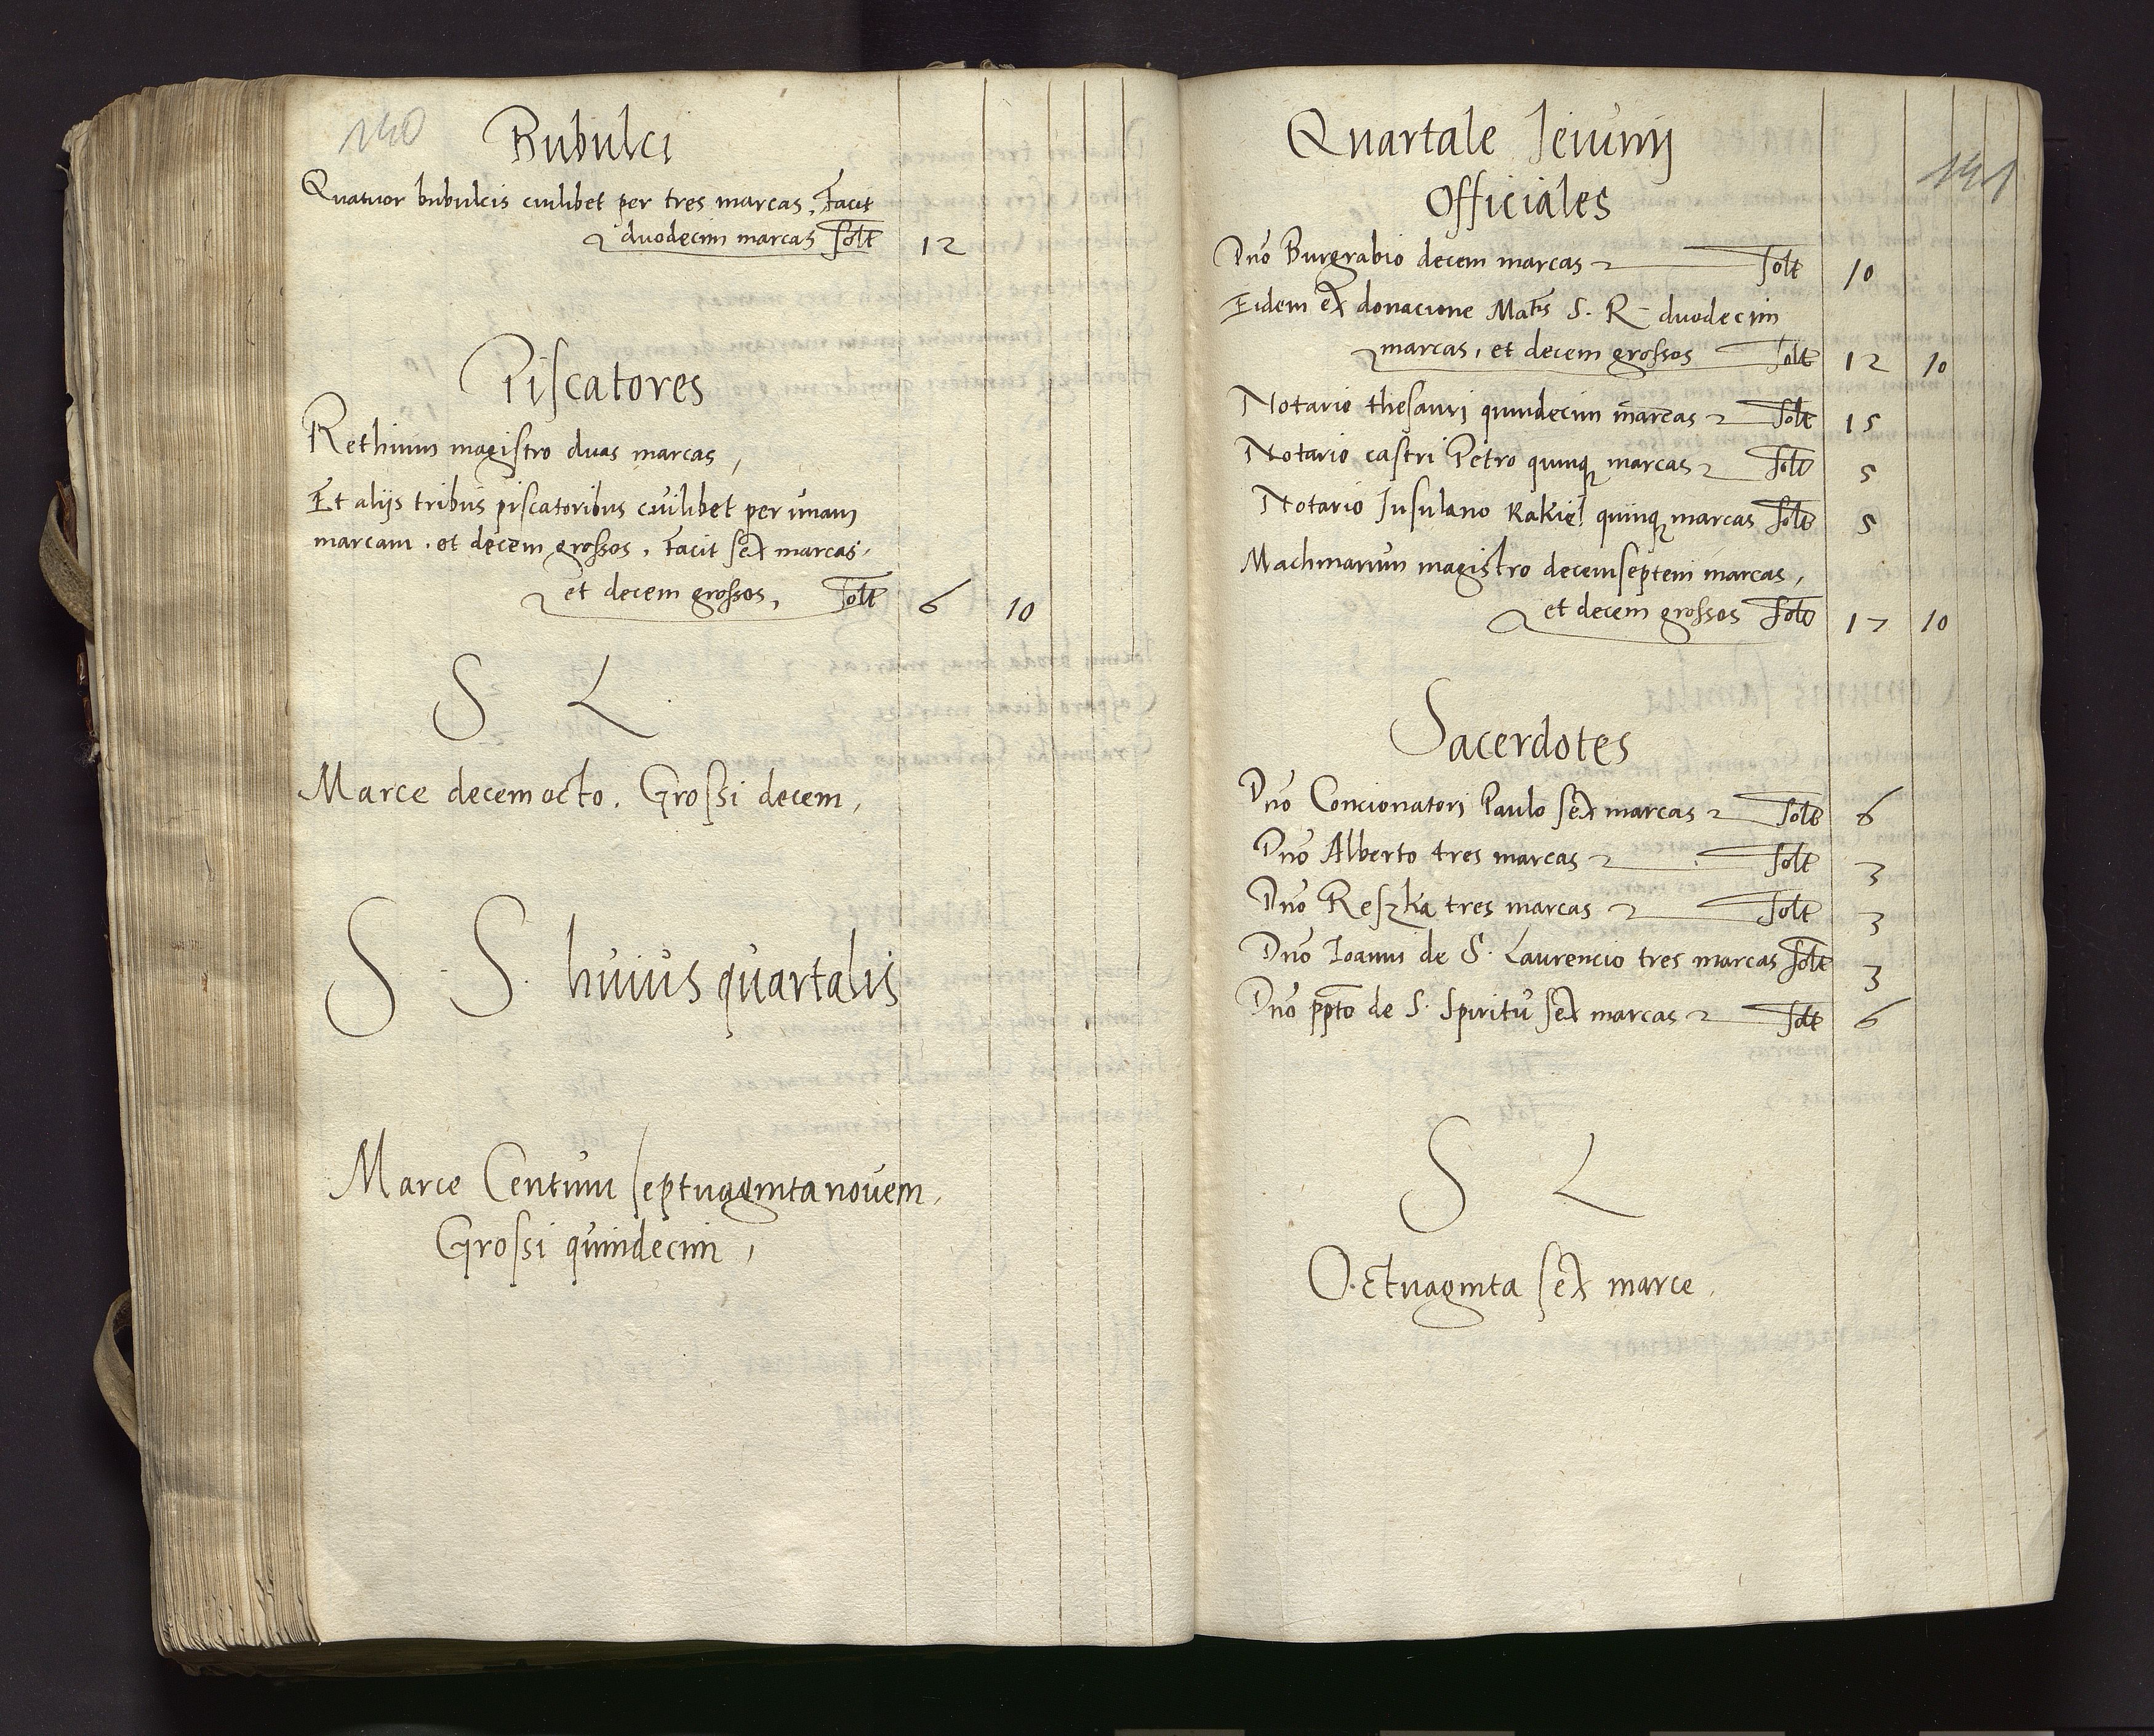 140
Bubulci
Quatuor bubulcis cuilibet per tres marcas. Facit
duodecim marcas Solt 12
Piscatores
Rethium magistro duas marcas,
Et alijs tribus piscatoribus cuilibet per unam
marcam. et decem grossos. Facit sex marcas,
et decem grossos, Solt 6 10
S L
Marce decem octo. Grossi decem,
S. S. huius quartalis
Marce Centum septuaginta novem,
Grossi quindecim,
141
Quartale Ieiunij
Officiales
Dno Burgrabio decem marcas Solt 10
Eidem ex donacione Matis S. R duodecim
marcas, et decem grossos Solt 12 10
Notario thesauri quindecim marcas Solt 15
Notario castri Petro quinq marcas Solt 5
Notario Insulano Kakiel quinq marcas Solt 5
Machinarum magistro decemseptem marcas,
et decem grossos Solt 17 10
Sacerdotes
Dno Concionatori Paulo sex marcas Solt 6
Dno Alberto tres marcas Solt 3
Dno Reszka tres marcas Solt 3
Dno Ioanni de S. Laurencio tres marcas Solt 3
Dno ppto de S. Spiritu sex marcas Solt 6
S L
Octuaginta sex marce.